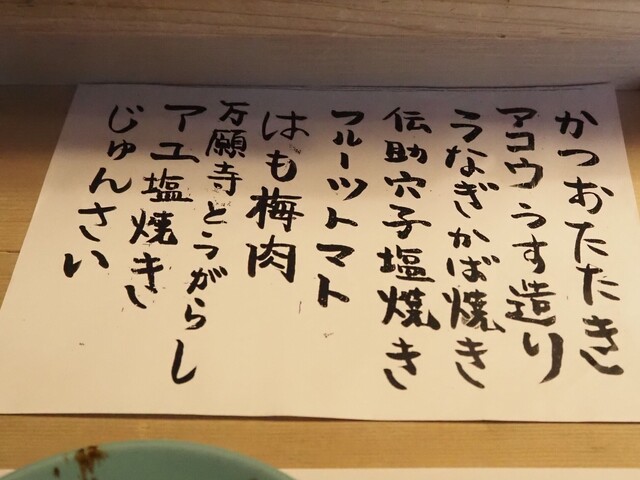 かつおたたき
アコウうす造り
うなぎかば焼き
伝助穴子塩焼き
フルーツトマト
はも梅肉
万願寺とうがらし
アユ塩焼き
じゅんさい